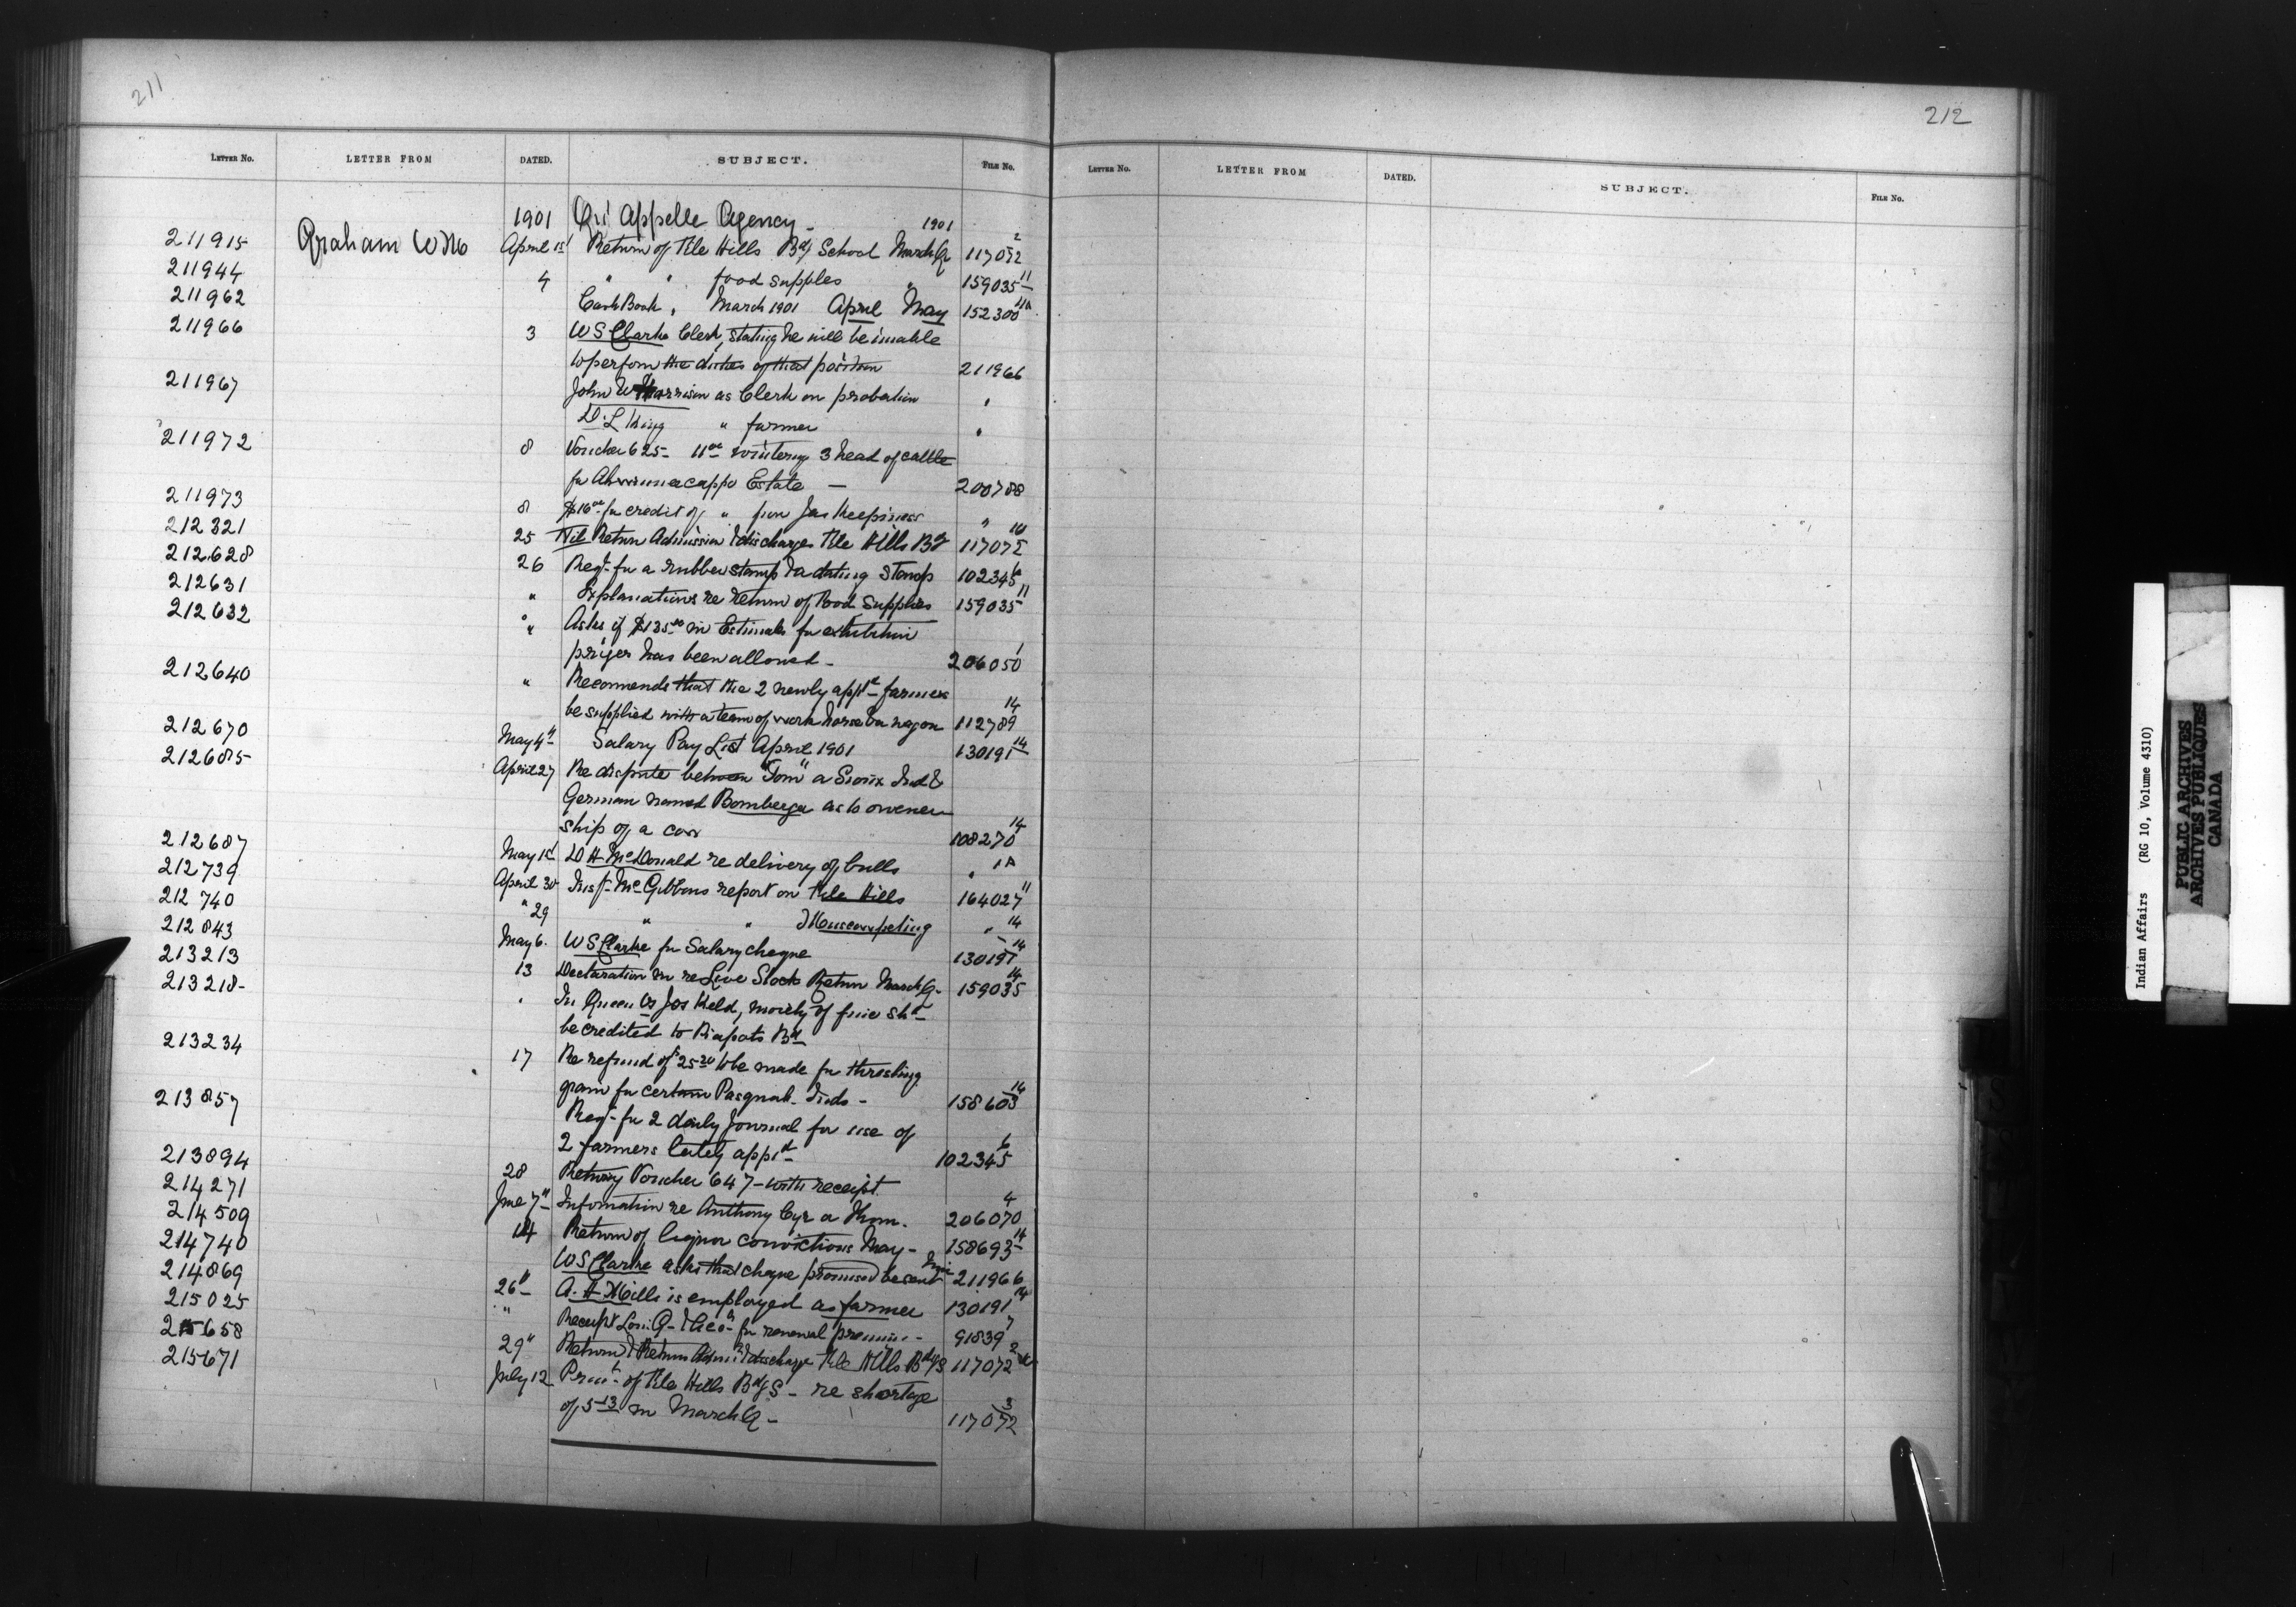 211
212
LETTER No. LETTER FROM DATED. SUBJECT. FILE No.
LETTER No. LETTER FROM DATED. SUBJECT. FILE No.
1901 Qu'Appelle Agency - 1901
211915 Graham W M April 1st Return of File Hills Bdg School March Q 117072 2
211944 4 " " food supplies " 159035 11
211962 Cash Book, March 1901 April May 152300 11A
211966 3 W S Clarke Clerk, stating he will be unable
to perform the duties of that position 211966
211967 John W Harrison as Clerk on probation "
D. L King " farmer "
211972 8 Voucher 625 - 11 00 wintering 3 head of cattle
for Estate — 200788
211973 8 $16 00 for credit of " from Jas Keepiness "
212321 25 Nil Return Admission & discharges File Hills Bdg 117072
212628 26 Reqn for a rubber stamp & a dating stamp 102345
212631 " Explanations re return of Food Supplies 159035 11
212632 " Asks if $135 00 in Estimates for exhibition
prizes has been allowed - 206050 1
212640 " Recommends that the 2 newly appt'd farmers
be supplied with a team of work horses & a wagon 112789 14
212670 May 4th Salary Pay List April 1901 130191 14
212685 April 27 Re dispute between "Tom" a Sioux Ind &
German named Bomberger as to owner
ship of a cow 108270 14
212687 May 1st D H McDonald re delivery of bulls " 1A
212739 April 30 Insp. McGibbons report on File Hills 164027 11
212740 " 29 " " Muscowpeting " 14
212843 May 6. W S Clarke for Salary cheque 130191 14
213213 13 Declaration in re Live Stock Return March Q - 159035 14
213218 - " In Queen vs Jos Keld, moiety of fine shd
be credited to Piapots Bd
213234 17 Re refund of $25 20 to be made for threshing
grain for certain Pasquah Inds - 158603 14
213857 Reqn for 2 daily Journal for use of
2 farmers lately appt'd 102345 6
213894 28 Retung Voucher 647 - with receipt
214271 June 7th Information re Anthony Cyr a Thom. 206070 4
214509 14 Return of liquor convictions May - 158693 14
214740 W S Clarke asks that cheque promised be sent him 211966
214869 26th A. H Mills is employed as farmer 130191 14
215025 " Receipt Lon. G. for renewal premium - 91839 7
215658 29th Return & Return Admn & discharge File Hills Bdg S 117072 2
215671 July 12 of File Hills Bdg S - re shortage
of 5 13 in March Q - 117072 3
Indian Affairs (RG 10, Volume 4310)
PUBLIC ARCHIVES
ARCHIVES PUBLIQUES
CANADA